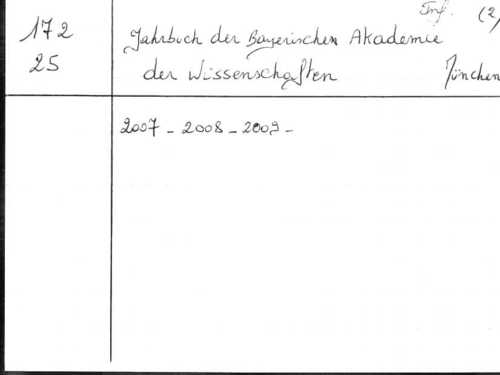 Inf. (2)
172 Jahrbuch der Bayerischen Akademie
25 der Wissenschaften München
2007 - 2008 - 2009 -